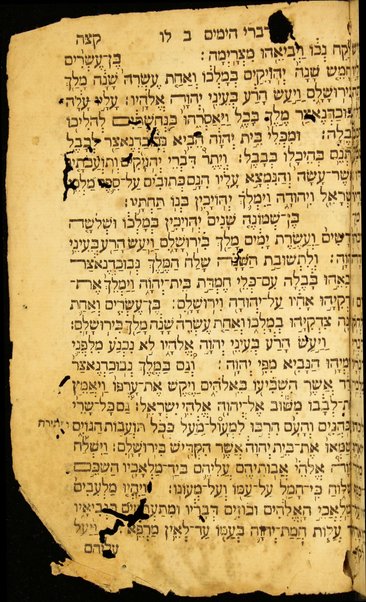 דברי הימים ב לו קצה
לקח נכו ויביאהו מצרימה: בן־עשרים
וחמש שנה יהויקים במלכו ואחת עשרה שנה מלך
בירושלם ויעש הרע בעיני יהוה אלהיו: עליו עלה
נבוכדנאצר מלך בבל ויאסרהו בנחשתים להליכו
בבלה: ומכלי בית יהוה הביא נבוכדנאצר לבבל
ויתנם בהיכלו בבבל: ויתר דברי יהויקים ותועבתיו
אשר־עשה והנמצא עליו הנם כתובים על־ספר מלכי
ישראל ויהודה וימלך יהויכין בנו תחתיו:
בן־שמונה שנים יהויכין במלכו ושלשה
חדשים ועשרת ימים מלך בירושלם ויעש הרע בעיני
יהוה: ולתשובת השנה שלח המלך נבוכדנאצר
ויבאהו בבלה עם־כלי חמדת בית־יהוה וימלך את־
צדקיהו אחיו על־יהודה וירושלם: בן־עשרים ואחת
שנה צדקיהו במלכו ואחת עשרה שנה מלך בירושלם:
ויעש הרע בעיני יהוה אלהיו לא נכנע מלפני
ירמיהו הנביא מפי יהוה: וגם במלך נבוכדנאצר
מרד אשר השביעו באלהים ויקש את־ערפו ויאמץ
את־לבבו משוב אל־יהוה אלהי ישראל: גם כל־שרי
הכהנים והעם הרבו למעול־מעל ככל תועבות הגוים
ויטמאו את־בית יהוה אשר הקדיש בירושלם: וישלח
יהוה אלהי אבותיהם עליהם ביד מלאכיו השכם
ושלוח כי־חמל על־עמו ועל־מעונו: ויהיו מלעבים
במלאכי האלהים ובוזים דבריו ומתעתעים בנביאיו
עד עלות חמת־יהוה בעמו עד־לאין מרפא: ויעל
עליהם